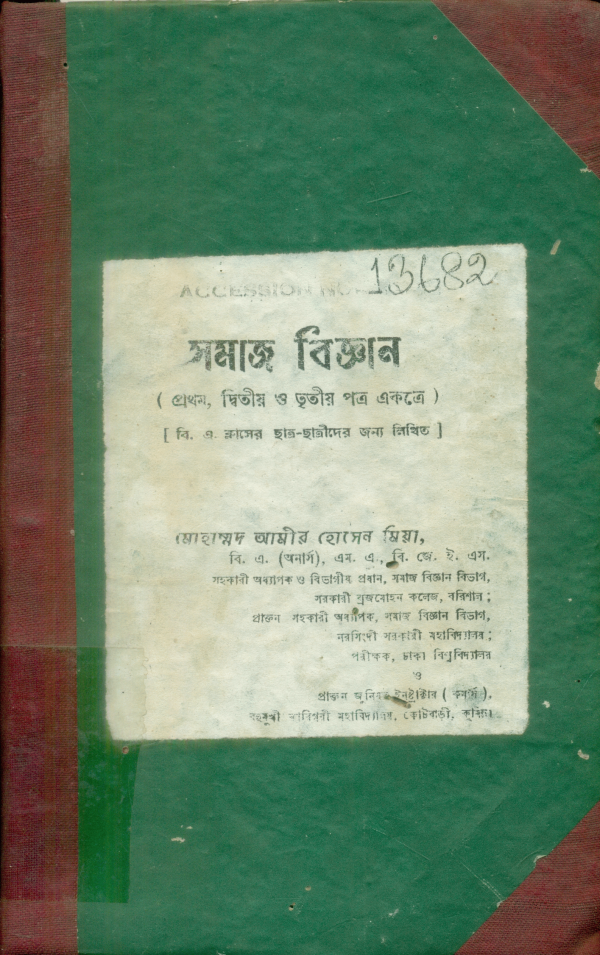 ACCESSION
13682
সমাজ বিজ্ঞান
( প্রথম, দ্বিতীয় ও তৃতীয় পত্র একত্রে )
[ বি. এ. ক্লাসের ছাত্র-ছাত্রীদের জন্য লিখিত ]
মোহাম্মদ আমীর হোসেন মিয়া,
বি. এ. (অনার্স), এম. এ., বি. জে. ই. এস.
সহকারী অধ্যাপক ও বিভাগীয় প্রধান, সমাজ বিজ্ঞান বিভাগ,
সরকারী ব্রজমোহন কলেজ, বরিশাল;
প্রাক্তন সহকারী অধ্যাপক, সমাজ বিজ্ঞান বিভাগ,
নরসিংদী সরকারী মহাবিদ্যালয়;
পরীক্ষক, ঢাকা বিশ্ববিদ্যালয়
ও
প্রাক্তন জুনিয়র ইনষ্ট্রাক্টার ( কমার্স ),
মহাবিদ্যালয়, কোটবাড়ী,